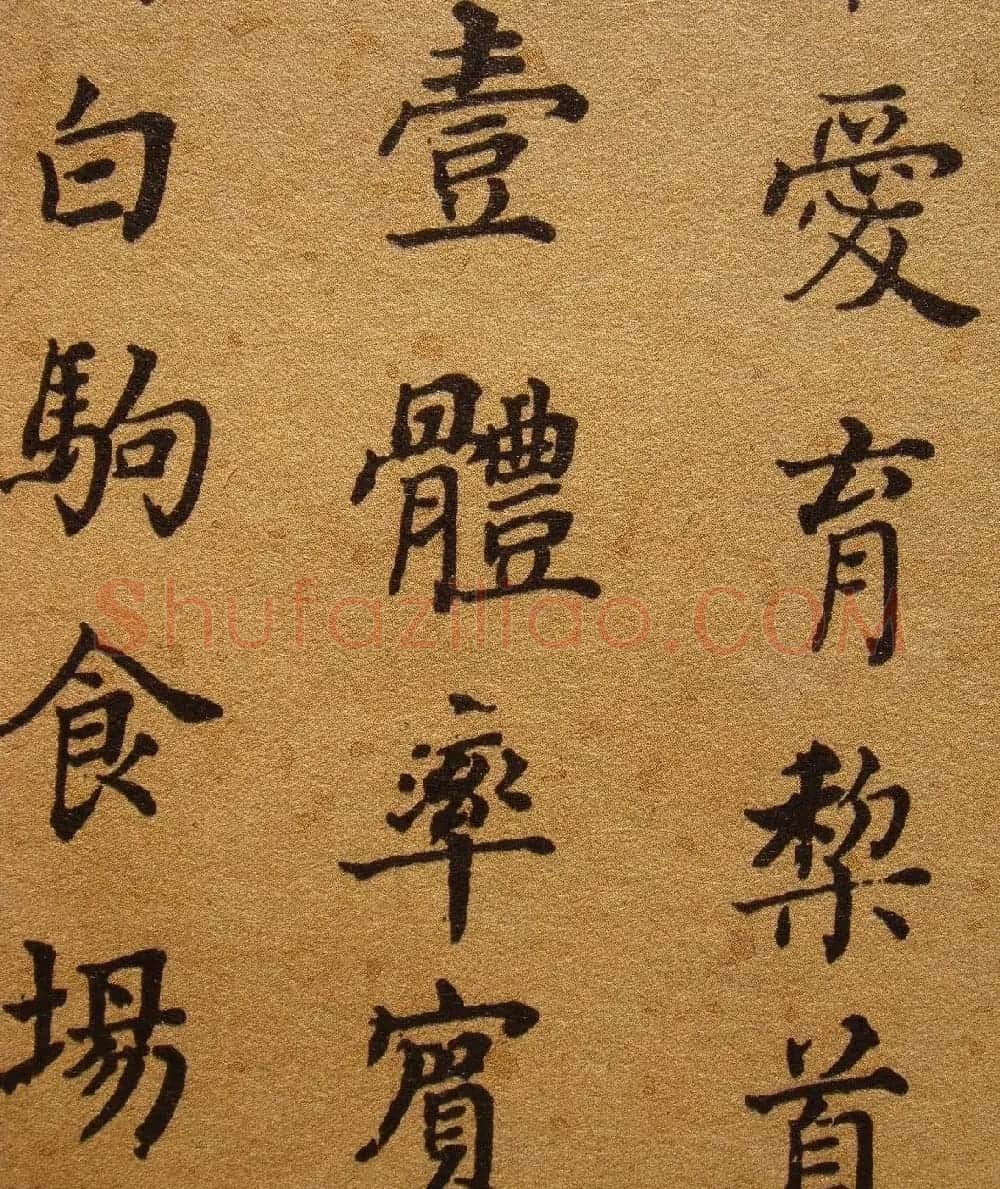 愛育黎首
壹體率賓
白駒食場
Shufaziliao.COM